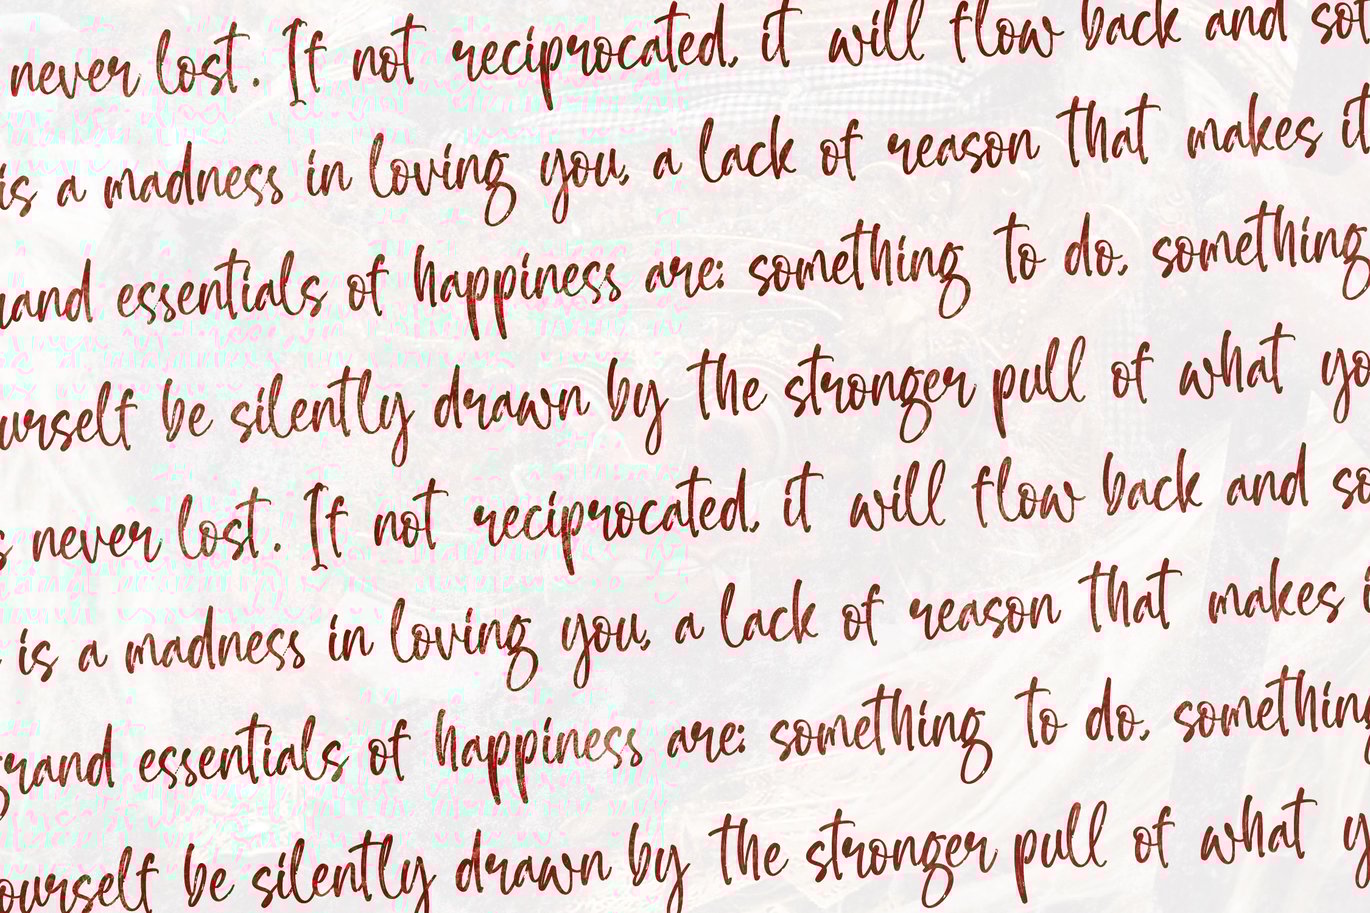 never lost. If not reciprocated, it will flow back and
is a madness in loving you, a lack of reason that makes it
essentials of happiness are: something to do, something
be silently drawn by the stronger pull of what
never lost. If not reciprocated, it will flow back and
is a madness in loving you, a lack of reason that makes
grand essentials of happiness are: something to do, something
yourself be silently drawn by the stronger pull of what